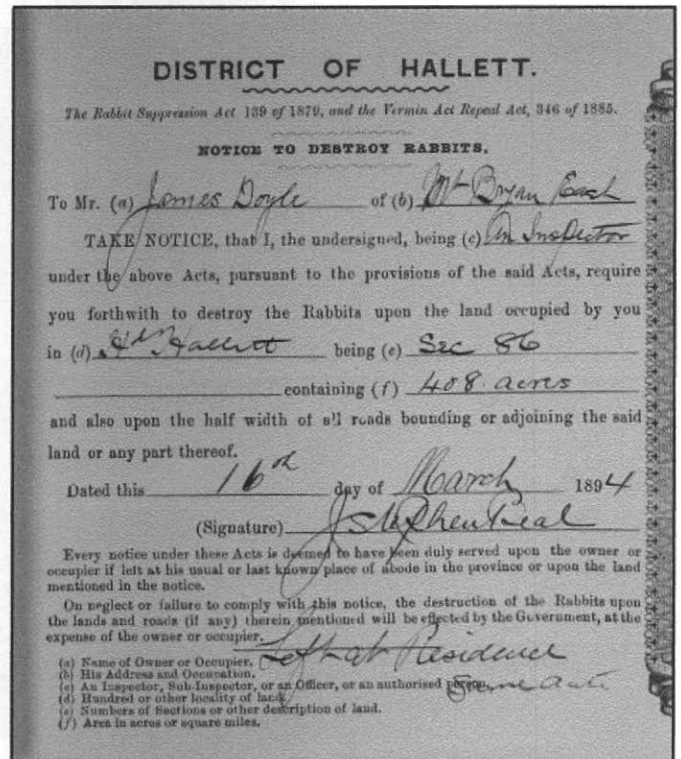 DISTRICT OF HALLETT.
The Rabbit Suppression Act 139 of 1879, and the Vermin Act Repeal Act, 346 of 1885.
NOTICE TO DESTROY RABBITS.
To Mr. (a) James Doyle of (b) Mt Bryan East
TAKE NOTICE, that I, the undersigned, being (c) An Inspector
under the above Acts, pursuant to the provisions of the said Acts, require
you forthwith to destroy the Rabbits upon the land occupied by you
in (d) Hd Hallett being (e) Sec 86
containing (f) 408 acres
and also upon the half width of all roads bounding or adjoining the said
land or any part thereof.
Dated this 16th day of March 1894
(Signature) J Stephen
Every notice under these Acts is deemed to have been duly served upon the owner or
occupier if left at his usual or last known place of abode in the province or upon the land
mentioned in the notice.
On neglect or failure to comply with this notice, the destruction of the Rabbits upon
the lands and roads (if any) therein mentioned will be effected by the Government, at the
expense of the owner or occupier.
Left at Residence
(a) Name of Owner or Occupier.
(b) His Address and Occupation.
(c) An Inspector, Sub-Inspector, or an Officer, or an authorised person.
(d) Hundred or other locality of land.
(e) Numbers of Sections or other description of land.
(f) Area in acres or square miles.